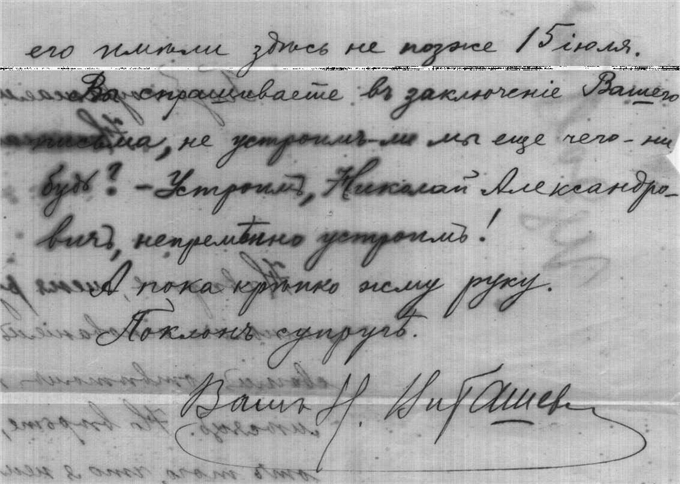 его имѣли здѣсь не позже 15 іюля.
Вы спрашиваете въ заключеніе Вашего
письма, не устроимъ-ли мы еще чего-ни
будь? - Устроимъ, Николай Александро-
вичъ, непремѣнно устроимъ!
А пока крѣпко жму руку.
Поклонъ супругѣ.
Вашъ Н.